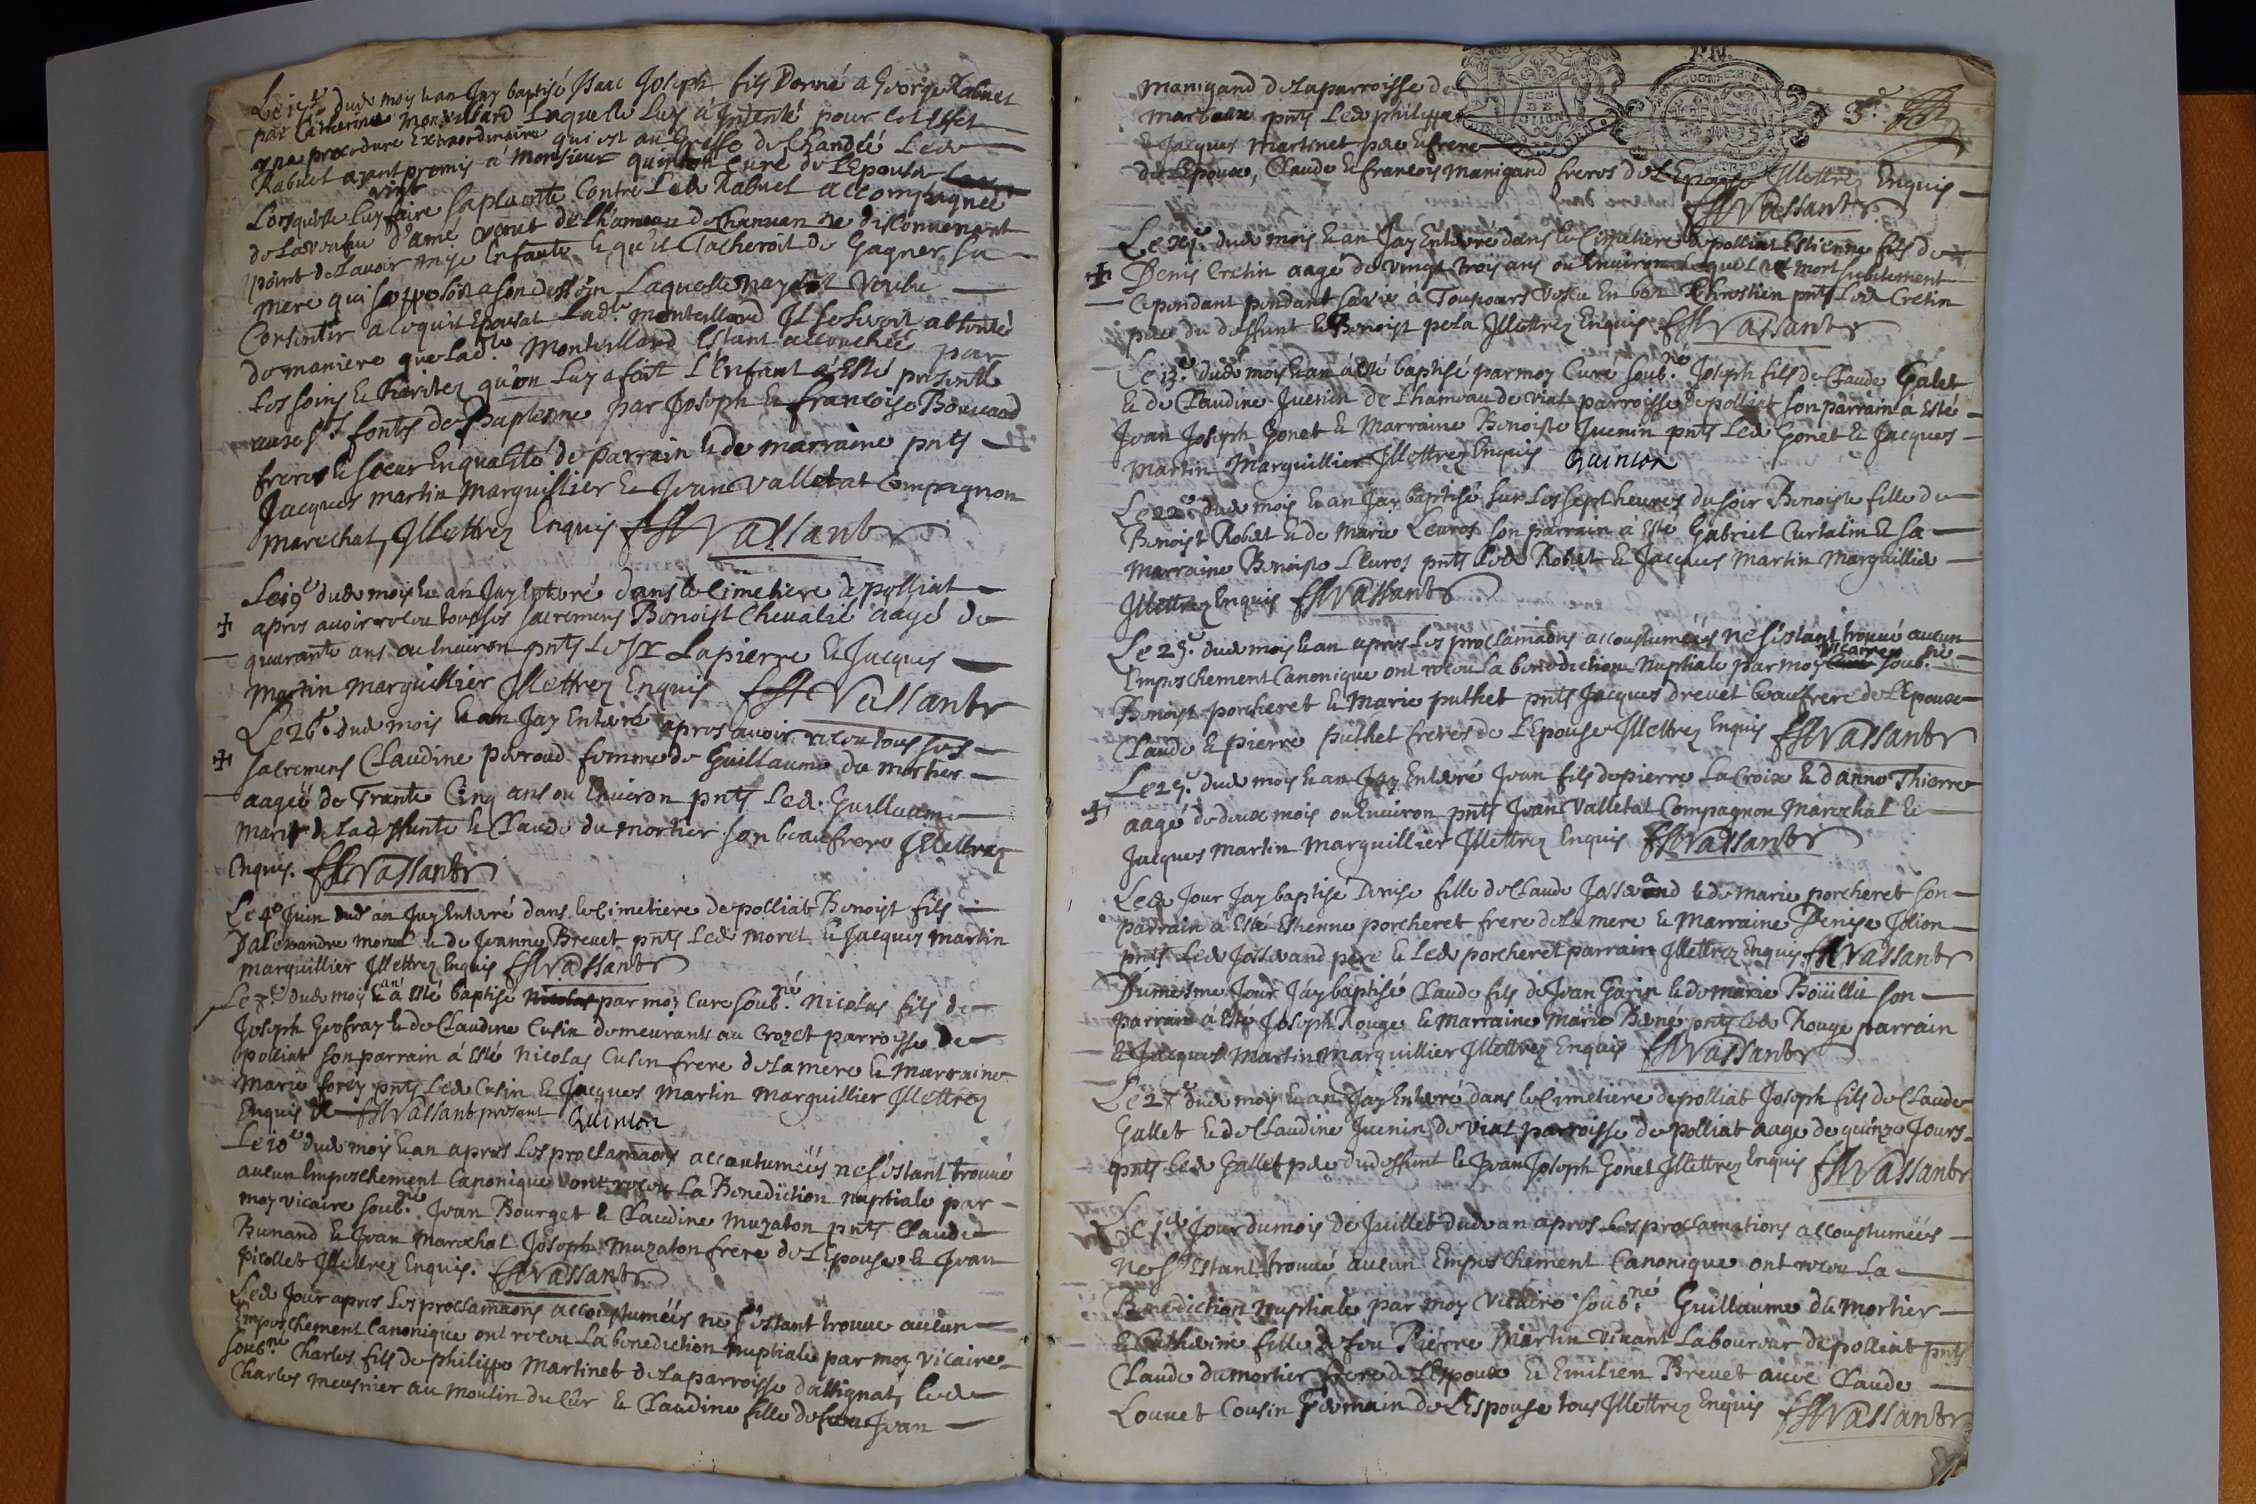 dud mois & an Jay baptisé Isaac Joseph fils Donné a George Rabuel
par Catherine Monteillard Laquelle Luy a Intenté pour cet Effet
une procedure Extraordinaire qui est au Greffe de Chandée Led
Rabuel ayant promis a Monsieur quinson Curé de L'Epouser
Lorsqu'elle vint Luy faire sa plainte Contre Led Rabuel accompagnée
de La veufve d'amé Venet de L'hameau de Chanuan ne disconvenant
point de L'avoir mise Enfante & qu'il tacheroit de Gagner sa
mere qui s'opposoit a son dessein Laquelle n'ayant Voulu
Consentir a ce qu'il Epousat Lad.te Monteillard Il se seroit absenté
de maniere que Lad.te Monteillard Estant accouchée par
Les soins & charitez qu'on Luy a fait L'Enfant a Esté presenté
aux S.ts fonts de Bapteme par Joseph & francoise Bouuard
freres & soeur En qualité de parrain & de marraine pnts
Jacques martin Marguillier & Jean Valletat Compagnon
marechal, Illettrez Enquis Vassant
Le 19e dud mois & an Jay Enterré dans le Cimetiere de polliat
apres avoir receu tous ses sacremens Benoist Chevalié aagé de
quarante ans ou Environ pnts Lapierre & Jacques
Martin Marguillier Illettrez Enquis Vassant
Le 26e dud mois & an Jay Enterré apres avoir receu tous ses
sacremens Claudine peroud femme de Guillaume du mortier
aageé de Trante Cinq ans ou Environ pnts Led. Guillaume
mary de La deffunte & Claude du mortier son beaufrere Illettrez
Enquis. Vassant
Le 4e Juin dud an Jay Enterré dans le Cimetiere de polliat Benoist fils
D'alexandre morel & de Jeanne Brevet pnts Led morel & Jacques Martin
marguillier Illettrez Enquis Vassant
Le dud mois & an a esté baptisé par moy Curé soub.né Nicolas fils de
Joseph Geofray & de Claudine Cusin demeurants au Crozet parroisse de
polliat son parrain á Esté Nicolas Cusin frere de La mere & Marraine
Marie forey pnts Led Cusin & Jacques Martin Marguillier Illettrez
Enquis & Vassant present Quinson
Le 10e dud mois & an apres Les proclamaons accoutumeés ne s'estant trouvé
aucun Empeschement Canonique ont receu La Benediction nuptiale par
moy vicaire soub.né Jean Bourget & Claudine Muzaton pnts Claude
Bunand & Jean Marechal Joseph Muzaton frere de L'Epouse & Jean
picollet Illettrez Enquis. Vassant
Led Jour apres Les proclamaons accoustumeés ne s'estant trouvé aucun
Empeschement Canonique ont receu La benediction Nuptiale par moy vicaire
soub.né Charles fils de philippe Martinet de La parroisse d'attignat, led
Charles meusnier au moulin du Cur & Claudine fille de feu Jean
Manigand de La parroisse de
Marboux pnts Led philippe
& Jacques Martinet pere & frere
de L'Epoux, Claude & francois Manigand freres de L'Epouse Illettrez Enquis
Vassant
dud mois & an Jay Enterré dans le Cimetiere de polliat Estienne fils de
Denis Cretin aagé de vingt trois ans ou Environ Lequel est mort subitement
Cependant pendant sa vie á Toujours vescu En bon Chrestien pnts Led Cretin
pere du deffunt & Benoist pela Illettrez Enquis Vassant
Le 13e dud mois & an á esté baptisé par moy Curé soub.né Joseph fils de Claude Galet
& de Claudine Juenin de L'hameau de viat parroisse de polliat son parrain á Esté
Jean Joseph Gonet & Marraine Benoiste Juenin pnts Led Gonet & Jacques
Martin Marguillier Illettrez Enquis Quinson
Le 22e dud mois & an Jay baptisé sur Les sept heures du soir Benoiste fille de
Benoist Robet & de Marie Leuros son parrain a Esté Gabriel Curtalin & sa
Marraine Benoiste Leuros pnts Led Robet & Jacques Martin Marguillier
Illettrez Enquis Vassant
Le 25e dud mois & an apres Les proclamaons accoustumeés ne s'estant trouvé aucun
Empeschement Canonique ont receu La benediction Nuptiale par moy vicaire soub.né
Benoist porcheret & Marie puthet pnts Jacques drevet beaufrere de L'Epoux
Claude & pierre puthet freres de L'Epouse Illettrez Enquis Vassant
Le 25e dud mois & an Jay Enterré Jean fils de pierre La Croix & d'anne Thierre
aagé de deux mois ou Environ pnts Jean Valletat Compagnon Marechal &
Jacques Martin Marguillier Illettrez Enquis Vassant
Led Jour Jay baptisé Denise fille de Claude Josserand & de Marie porcheret son
parrain a Esté Estienne porcheret frere de La mere & Marraine Denise Jolion
pnts Led Josserand pere & Led porcheret parrain Illettrez Enquis Vassant
Du mesme Jour Jay baptisé Claude fils de Jean Garin & de Marie son
parrain a Esté Joseph Rouge & Marraine Marie Bené pnts Led Rouge parrain
& Jacques Martin Marguillier Illettrez Enquis Vassant
Le 27e dud mois & an Jay Enterré dans le Cimetiere de polliat Joseph fils de Claude
Gallet & de Claudine Juenin de viat parroisse de polliat aagé de quinze Jours
pnts Led Gallet pere du deffunt & Jean Joseph Gonet Illettrez Enquis Vassant
Le 1er Jour du mois de Juillet dud an apres Les proclamations accoustumeés
ne s'Estant trouvé aucun Empeschement Canonique ont receu La
Benediction Nuptiale par moy Vicaire soub.né Guillaume du Mortier
& Catherine fille de feu Pierre Martin Vivant Laboureur de polliat pnts
Claude du mortier frere de L'Epoux & Emilien Brevet avec Claude
Louuet Cousin Germain de L'Espouse tous Illettrez Enquis Vassant